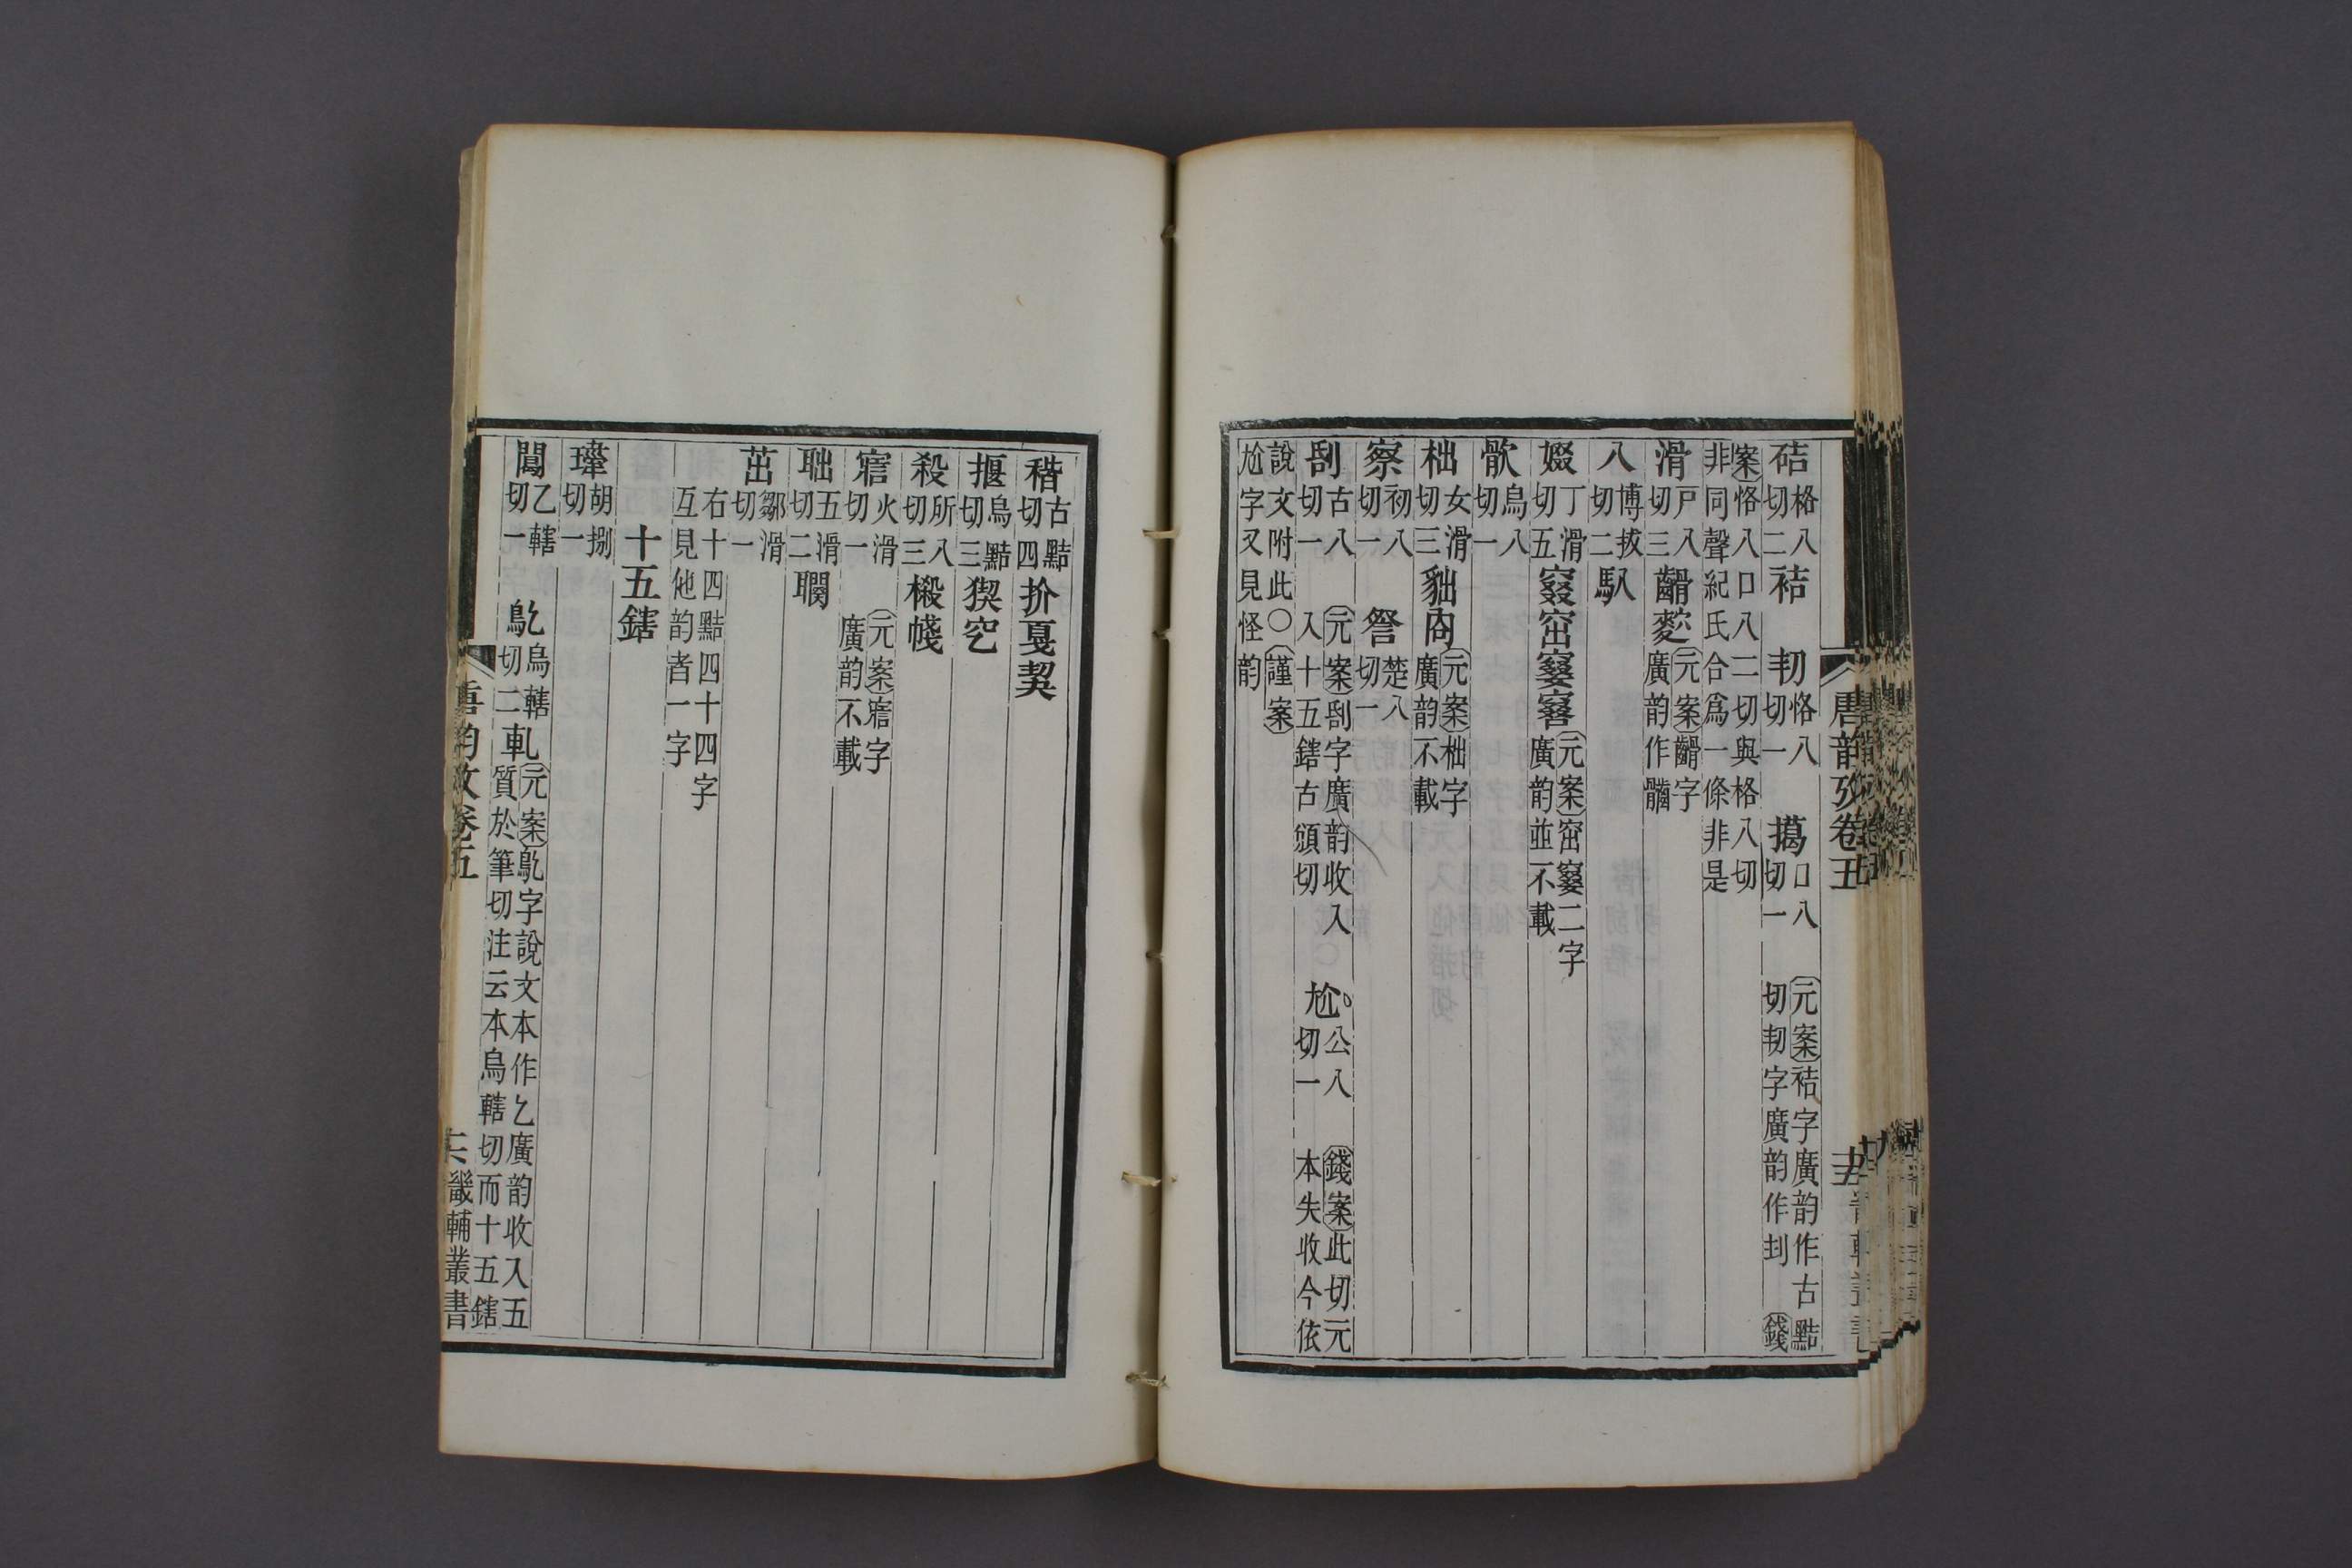 硈格八切二袺 㓞恪八切一 擖口八切一 元案袺字廣韵作古黠切㓞字廣韵作㓤 錢
案恪八口八二切與格八切非同聲紀氏合爲一條非是
滑戸八切三䶤𪍿元案䶤字廣韵作䯏
八博拔切二馱
娺丁滑切五窡窋䆯𥦪元案窋䆯二字廣韵並不載
䯉烏八切一
柮女滑切三貀㕯元案柮字廣韵不載
察初八切一 詧楚八切一
刮古八切一 元案刮字廣韵收入入十五鎋古頒切 尬公八切一 錢案此切元本失收今依
說文附此○謹案尬字又見怪韵
唐韵攷卷五
十五
稭古黠切四扴戛𥝖
揠烏黠切三猰穵
殺所八切三樧㡜
𡪢火滑切一 元案𡪢字廣韵不載
聉五滑切二䦪
茁鄒滑切一
右十四黠四十四字互見他韵者一字
十五鎋
㻶胡捌切一
䦪乙轄切一 鳦烏轄切二軋元案鳦字說文本作乙廣韵收入五質於筆切注云本烏轄切而十五鎋
唐韵攷卷五
畿輔叢書